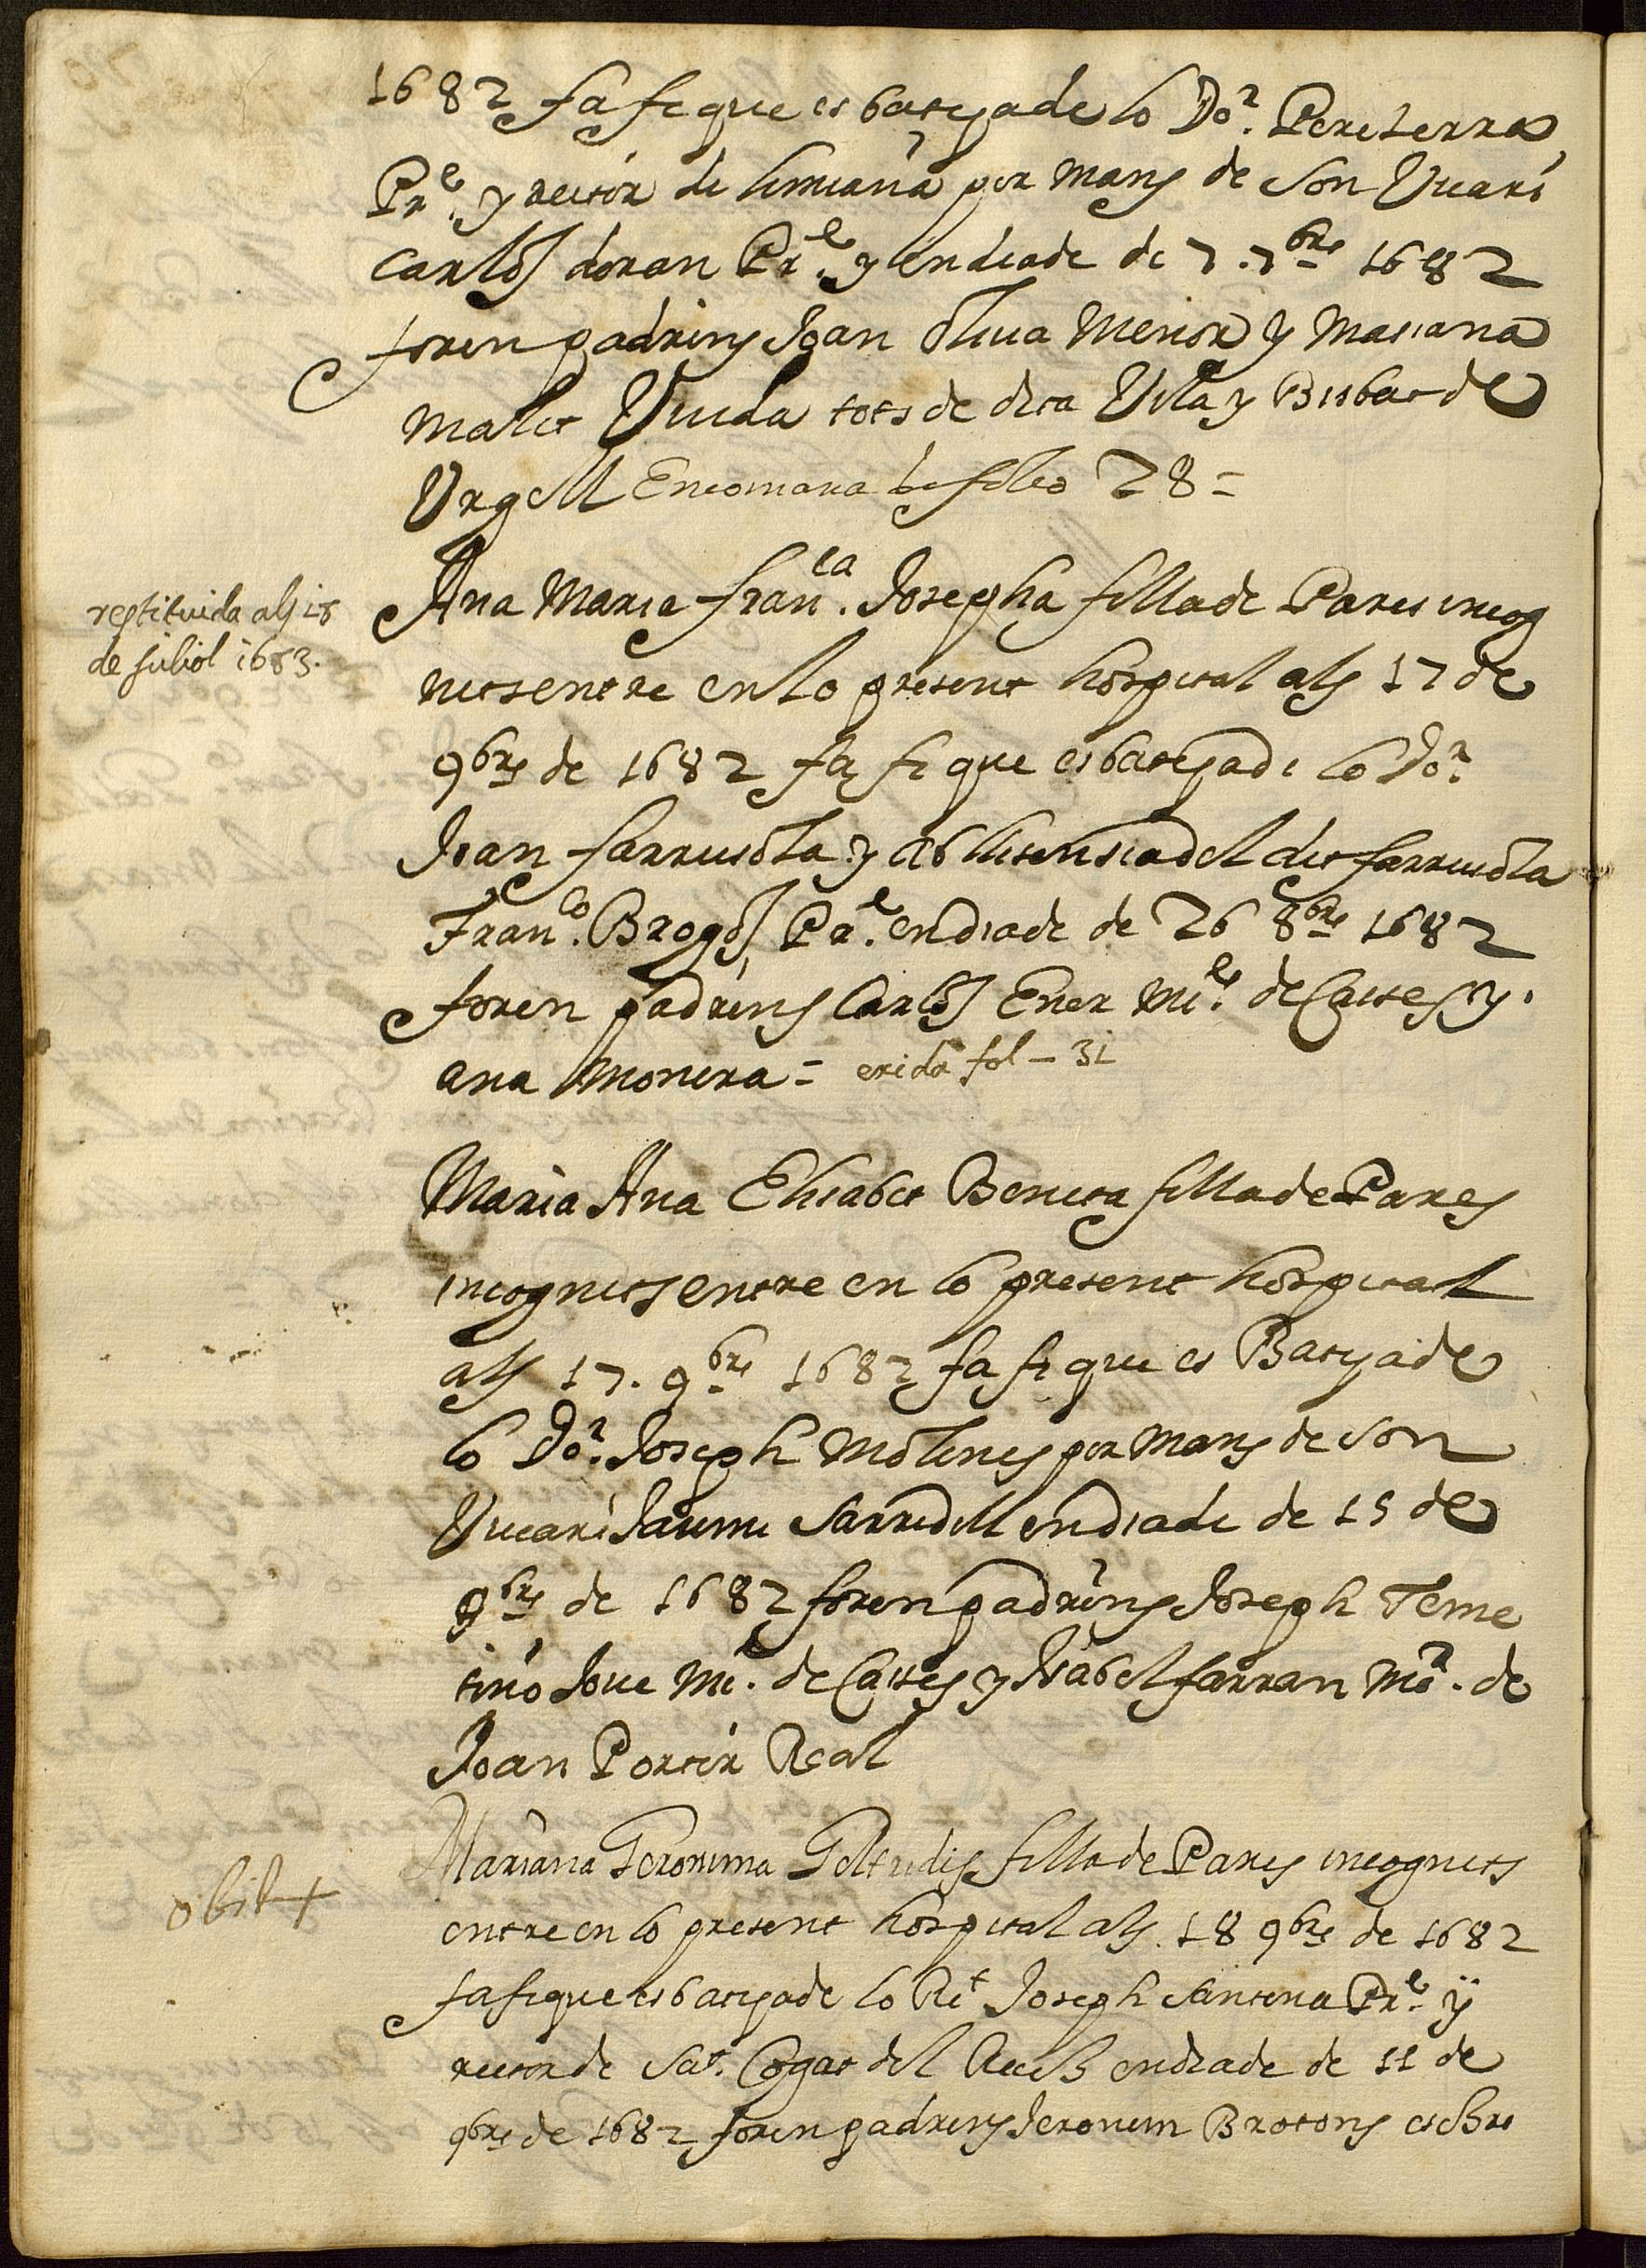 1682 fa fe que es batejade lo Dor. Pere serra
Pre. y rector de limiana per mans de son Vicari
Carlos doran Pre. y en diade de 7. 7bre 1682
foren padrins Joan oliva Menor y Mariana
Malet Viuda tots de dita Vila y Bisbat de
Urgell Encomana de folio 28 =
Ana Maria Franca. Josepha filla de Pares incog
nits entre en lo present hospital als 17 de
9bre de 1682 fa fe que es batejade lo Dor
Joan farrusola y ab llisensia del dit farrusola
Franco. Brogos Pre. en diade de 26 8bre 1682
foren padrins Carlos Ener Me. de Cases y
ana Monera = erida fol - 31
restituida als 18
de juliol 1683.
Maria Ana Elisabet Beneta filla de Pares
incognits entre en lo present hospital
als 17. 9bre 1682 fa fe que es Batejade
lo Dor. Joseph Molines per mans de son
Vicari Jaume Sarrdell en diade de 15 de
9bre de 1682 foren padrins Joseph Teme
tino Jove Me. de Cases y Isabel farran Mor. de
Joan Porter Real
Mariana Geronima Geltrudis filla de Pares incognits
entre en lo present hospital als 18 9bre de 1682
fa fe que es batejade lo Rt Joseph Santena Pre. ÿ
rector de Sat. Cogat del Rech en diade de 11 de
9bre de 1682 foren padrins Jeronim Brotons escBre
obit +